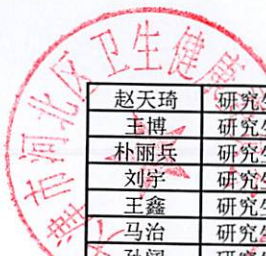 津市河北区卫生健康
赵天琦 研究生
王博 研究生
朴丽兵 研究生
刘宇 研究生
王鑫 研究生
马治 研究生